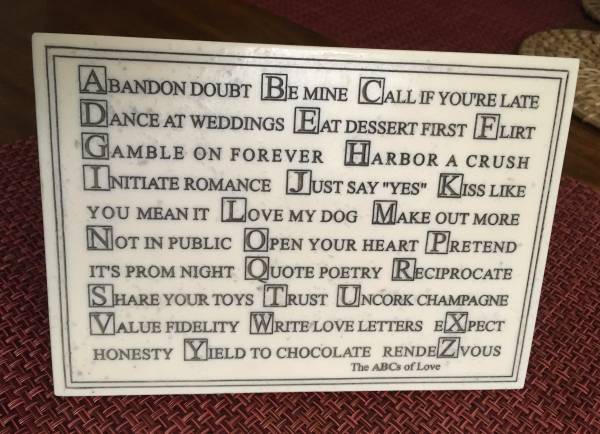 ABANDON DOUBT BE MINE CALL IF YOU'RE LATE
DANCE AT WEDDINGS EAT DESSERT FIRST FLIRT
GAMBLE ON FOREVER HARBOR A CRUSH
INITIATE ROMANCE JUST SAY "YES" KISS LIKE
YOU MEAN IT LOVE MY DOG MAKE OUT MORE
NOT IN PUBLIC OPEN YOUR HEART PRETEND
IT'S PROM NIGHT QUOTE POETRY RECIPROCATE
SHARE YOUR TOYS TRUST UNCORK CHAMPAGNE
VALUE FIDELITY WRITE LOVE LETTERS EXPECT
HONESTY YIELD TO CHOCOLATE RENDEZVOUS
The ABCs of Love